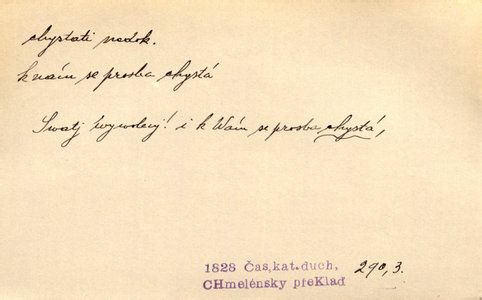 chystati nedok.
k nám se prosba chystá
Swatj wywolenj! i k Wám se prosba chystá,
1828 Čas.kat.duch, 290,3.
CHmelénsky přeKlad